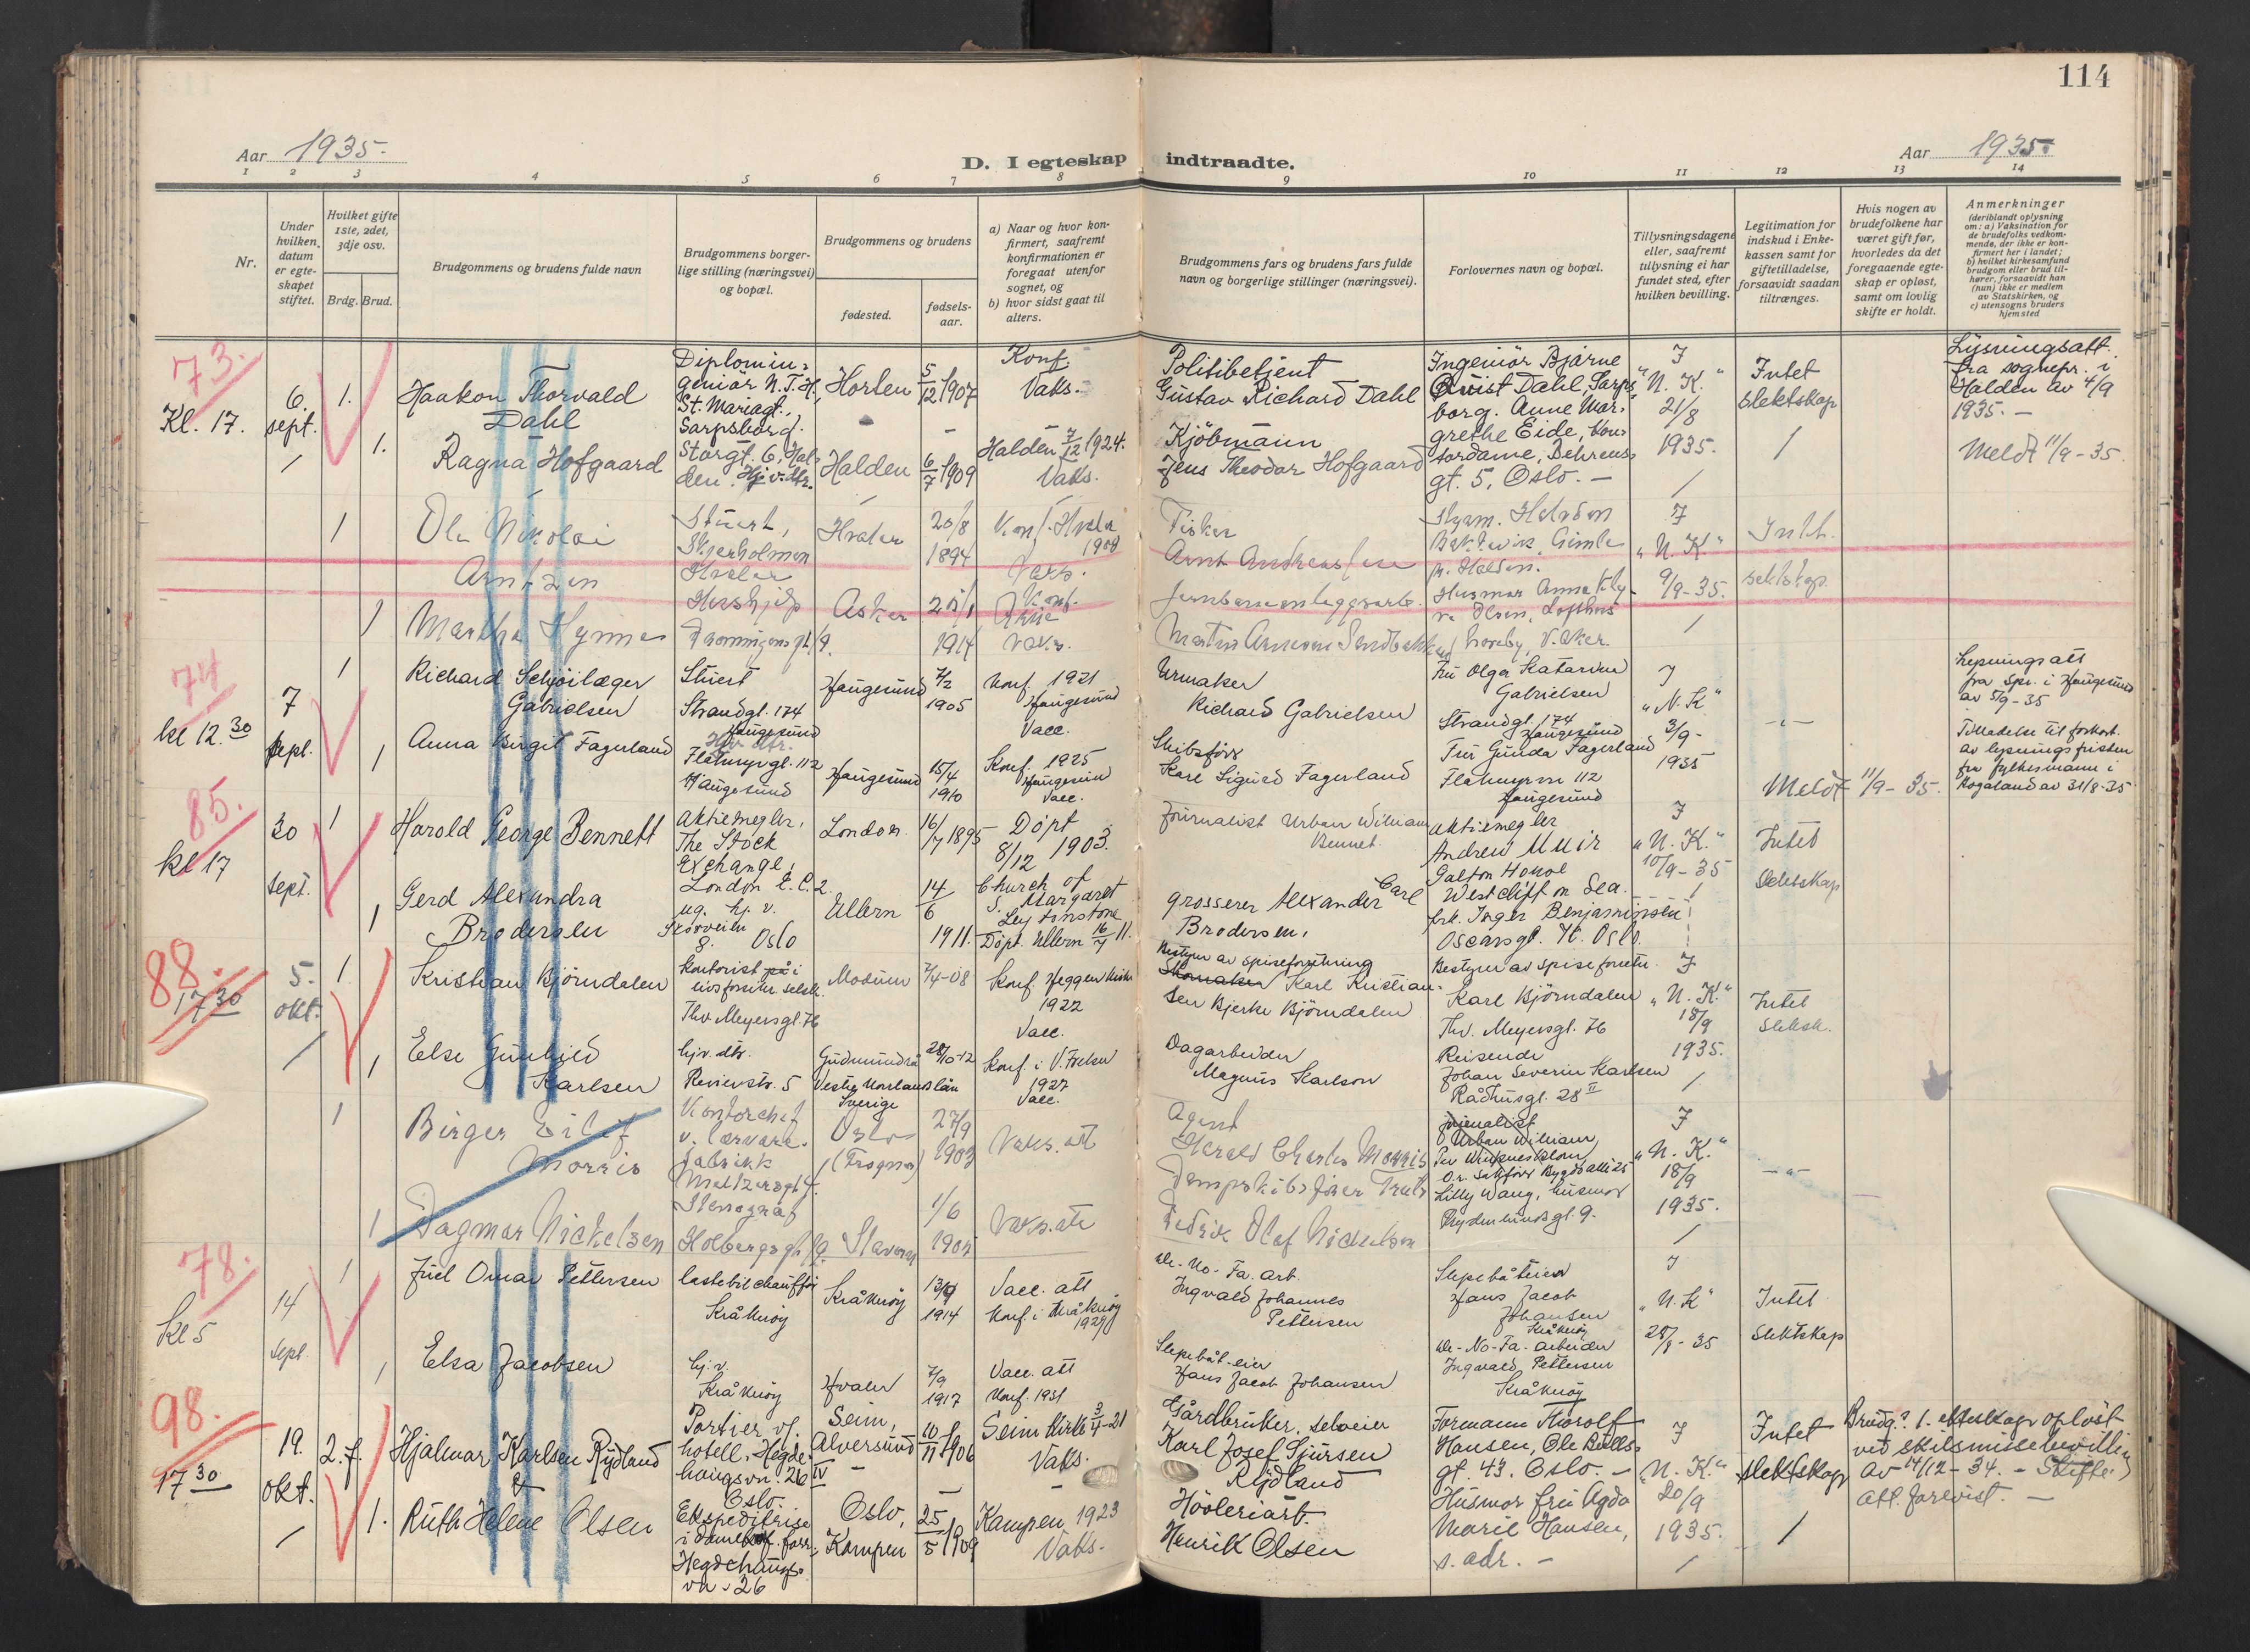 114
Aar 1935.
D. I egteskap indtraadte.
Aar 1935.
1 2 3 4 5 6 7 8 9 10 11 12 13 14
Nr.
Under hvilken datum er egteskapet stiftet.
Hvilket gifte 1ste, 2det, 3dje osv.
Brdg. Brud.
Brudgommens og brudens fulde navn
Brudgommens borgerlige stilling (næringsvei) og bopæl.
Brudgommens og brudens
fødested.
fødselsaar.
a) Naar og hvor konfirmert, saafremt konfirmationen er foregaat utenfor sognet, og
b) hvor sidst gaat til alters.
Brudgommens fars og brudens fars fulde navn og borgerlige stillinger (næringsvei).
Forlovernes navn og bopæl.
Tillysningsdagene eller, saafremt tillysning ei har fundet sted, efter hvilken bevilling.
Legitimation for indskud i Enkekassen samt for giftetilladelse, forsaavidt saadan tiltrænges.
Hvis nogen av brudefolkene har været gift før, hvorledes da det foregaaende egteskap er opløst, samt om lovlig skifte er holdt.
Anmerkninger
(deriblandt oplysning om: a) Vaksination for de brudefolks vedkommende, der ikke er konfirmert her i landet; b) hvilket kirkesamfund brudgom eller brud tilhører, forsaavidt han (hun) ikke er medlem av Statskirken, og c) utensogns bruders hjemsted
73.
Kl. 17.
6. sept.
1.
Haakon Thorvald Dahl
Diplomingeniør N.T.H., St. Mariagt., Sarpsborg.
Horten
5/12 1907
Konf. Vaks.
Politibetjent
Gustav Richard Dahl
Ingeniör Bjarne Qvist Dahl, Sarpsborg. Anne Margrethe Eide, kontordame, Behrensgt. 5, Oslo. —
I
"N. K."
21/8
1935.
Intet slektskap
Lysningsatt. fra sognepr. i Halden av 4/9 1935. —
1.
Ragna Hofgaard
Storgt. 6, Halden. Hjv. dtr.
Halden
6/7 1909
Halden 7/12 1924.
Vaks.
Kjöbmann
Jens Theodor Hofgaard
Meldt 11/9-35.
1
Ole Nikolai Arntzen
Stuert, Skjerholmen Hvaler
Hvaler
20/8 1894
Konf. Hvaler 1908
Vaks.
Fisker
I
"N. K."
9/9-35.
Intet slektskap.
1
Martha Hynne
Hushjelp
Asker
1914
Konf.
Vaks.
74
kl 12.30
7 sept.
1
Richard Schjöilæger Gabrielsen
Stuert
Strandgt. 174
Haugesund
Haugesund
7/2 1905
Konf. 1921 Haugesund
Vacc.
Urmaker
Richard Gabrielsen
Fru Olga Katarina Gabrielsen
Strandgt. 174 Haugesund
Fru Gunda Fagerland
Flatmyrvn 112 Haugesund
I
"N.K"
3/9 -
1935
Lysningsatt fra spr. i Haugesund av 5/9-35
Tilladelse til forkort. av lysningsfristen fra fylkesmann i Rogaland av 31/8-35
1
Anna Birgit Fagerland
Hjv. dtr.
Flatmyrgt. 112
Haugesund
Haugesund
15/4 1910
Konf. 1925 Haugesund
Vacc.
Skibsförer
Karl Sigurd Fagerland
Meldt 11/9-35.
85.
kl 17
30 sept.
1
Harold George Bennett
Aktiemegler, The Stock Exchange, London E.C.2.
London
16/7 1895
Döpt 8/12 1903. Church of S. Margaret Leytonstone
Journalist Urban William Bennet.
Aktiemegler Andrew Muir
Westcliff on Sea.
Frk. Inger Benjaminsen
Oscarsgt. Oslo.
I
"N. K."
10/9-35
Intet Slektskap
1
Gerd Alexandra Brodersen
ug. hj. v.
8. Oslo
Ullern
14/6 1911.
Döpt. Ullern 16/7 11.
Grosserer Alexander Carl Brodersen.
88.
17 30
5. okt.
1.
Kristian Bjørndalen
Kontorist i livsforsikr. selsk.
Thv. Meyersgt. 76
Modum
7/4-08
Konf. Heggen kirke 1922
Vacc.
Bestyrer av spiseforretning
Karl Kristiansen Bjerke Björndalen
Bestyrer av spiseforretn.
Karl Björndalen
Thv. Meyersgt. 76
Reisende
Johan Severin Karlsen
Rådhusgt. 28 II
I
"N. K."
18/9
1935.
Intet Slektsk.
1
Else Gunhild Karlsen
hjv. dtr.
Revierstr. 5
Gudmundrå
Vester Norrlands län
Sverige
28/10-12
Konf. i V. Frelser 1927
Vacc.
Dagarbeider
Magnus Karlson
1
Birger Eilif Morris
Kontorchef
Oslo (Frogner)
27/9 1903
Vaks. att
Agent
Harald Charles Morris
Lilly Wang, husmor
I
"N. K."
18/9
1935.
1
Dagmar Nickelsen
Stenograf
Stavern
1/6
Vaks. att
78.
Kl 5
14 sept.
1
Juel Omar Pettersen
lastebilchauffør
Kråkerøy
Kråkerøy
13/9 1914
Vacc. att
Konf. i Kråkerøy 1929
De-No-Fa. arb.
Ingvald Johannes Pettersen
Slepebåteier
Hans Jacob Johansen
Kråkerøy
De-No-Fa. arbeider
Ingvald Pettersen
Kråkerøy
I
"N.K"
28/8-35
Intet slektskap
1
Elsa Jacobsen
hj. v.
Kråkerøy
Hvaler
7/9 1917
Vacc. att
Konf. 1931
Slepebåt-eier
Hans Jacob Johansen
98.
17 30
19. okt.
2. f.
Hjalmar Karlsen Rydland
&
Portier v/ hotell, Hegdehaugsvn. 26 IV Oslo.
Seim, Alversund
10/11 1906
Seim kirke 3/4-21
Vaks.
Gårdbruker, selveier
Karl Josef Sjursen Rydland
Formann Thorolf Hansen, Ole Bullsgt. 43, Oslo. —
Husmor fru Agda Marie Hansen, s. adr. —
I
"N. K."
20/9
1935.
Intet slektskap
Brudg.s 1. ekteskap opløst ved skilsmissebevilling av 14/12-34. — Skifteatt. forevist. —
1.
Ruth Helene Olsen
Ekspeditrise i forr. Hegdehaugsvn. 26
Oslo, Kampen
25/5 1909
Kampen 1923
Vaks.
Høvleriarb.
Henrik Olsen